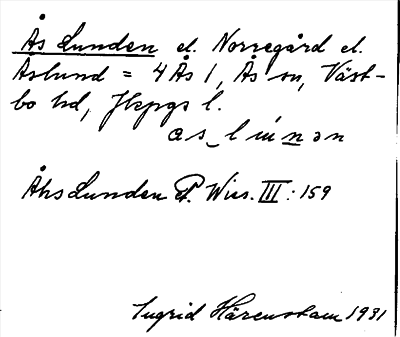 Ås Lunden el. Norregård el.
Åslund = 4 Ås 1, Ås sn, Väst-
bo hd, Jkpgs l.
as_lúnən
Åhs Lunden P. Wies. III: 159
Ingrid Härenstam 1931